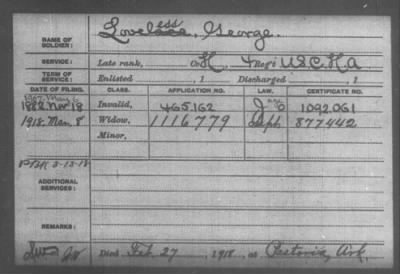 NAME OF SOLDIER: Loveless, George.
SERVICE: Late rank, Co H, 4 Reg't U.S.C.H.A
TERM OF SERVICE: Enlisted , 1 Discharged , 1
DATE OF FILING. CLASS. APPLICATION NO. LAW. CERTIFICATE NO.
1882 Nov 18 Invalid, 465.162 1092.061
1918 Mar. 8 Widow, 1116779 Sept. 877442
Minor,
ADDITIONAL SERVICES:
REMARKS:
Died Feb. 27, 1918, at Ark.